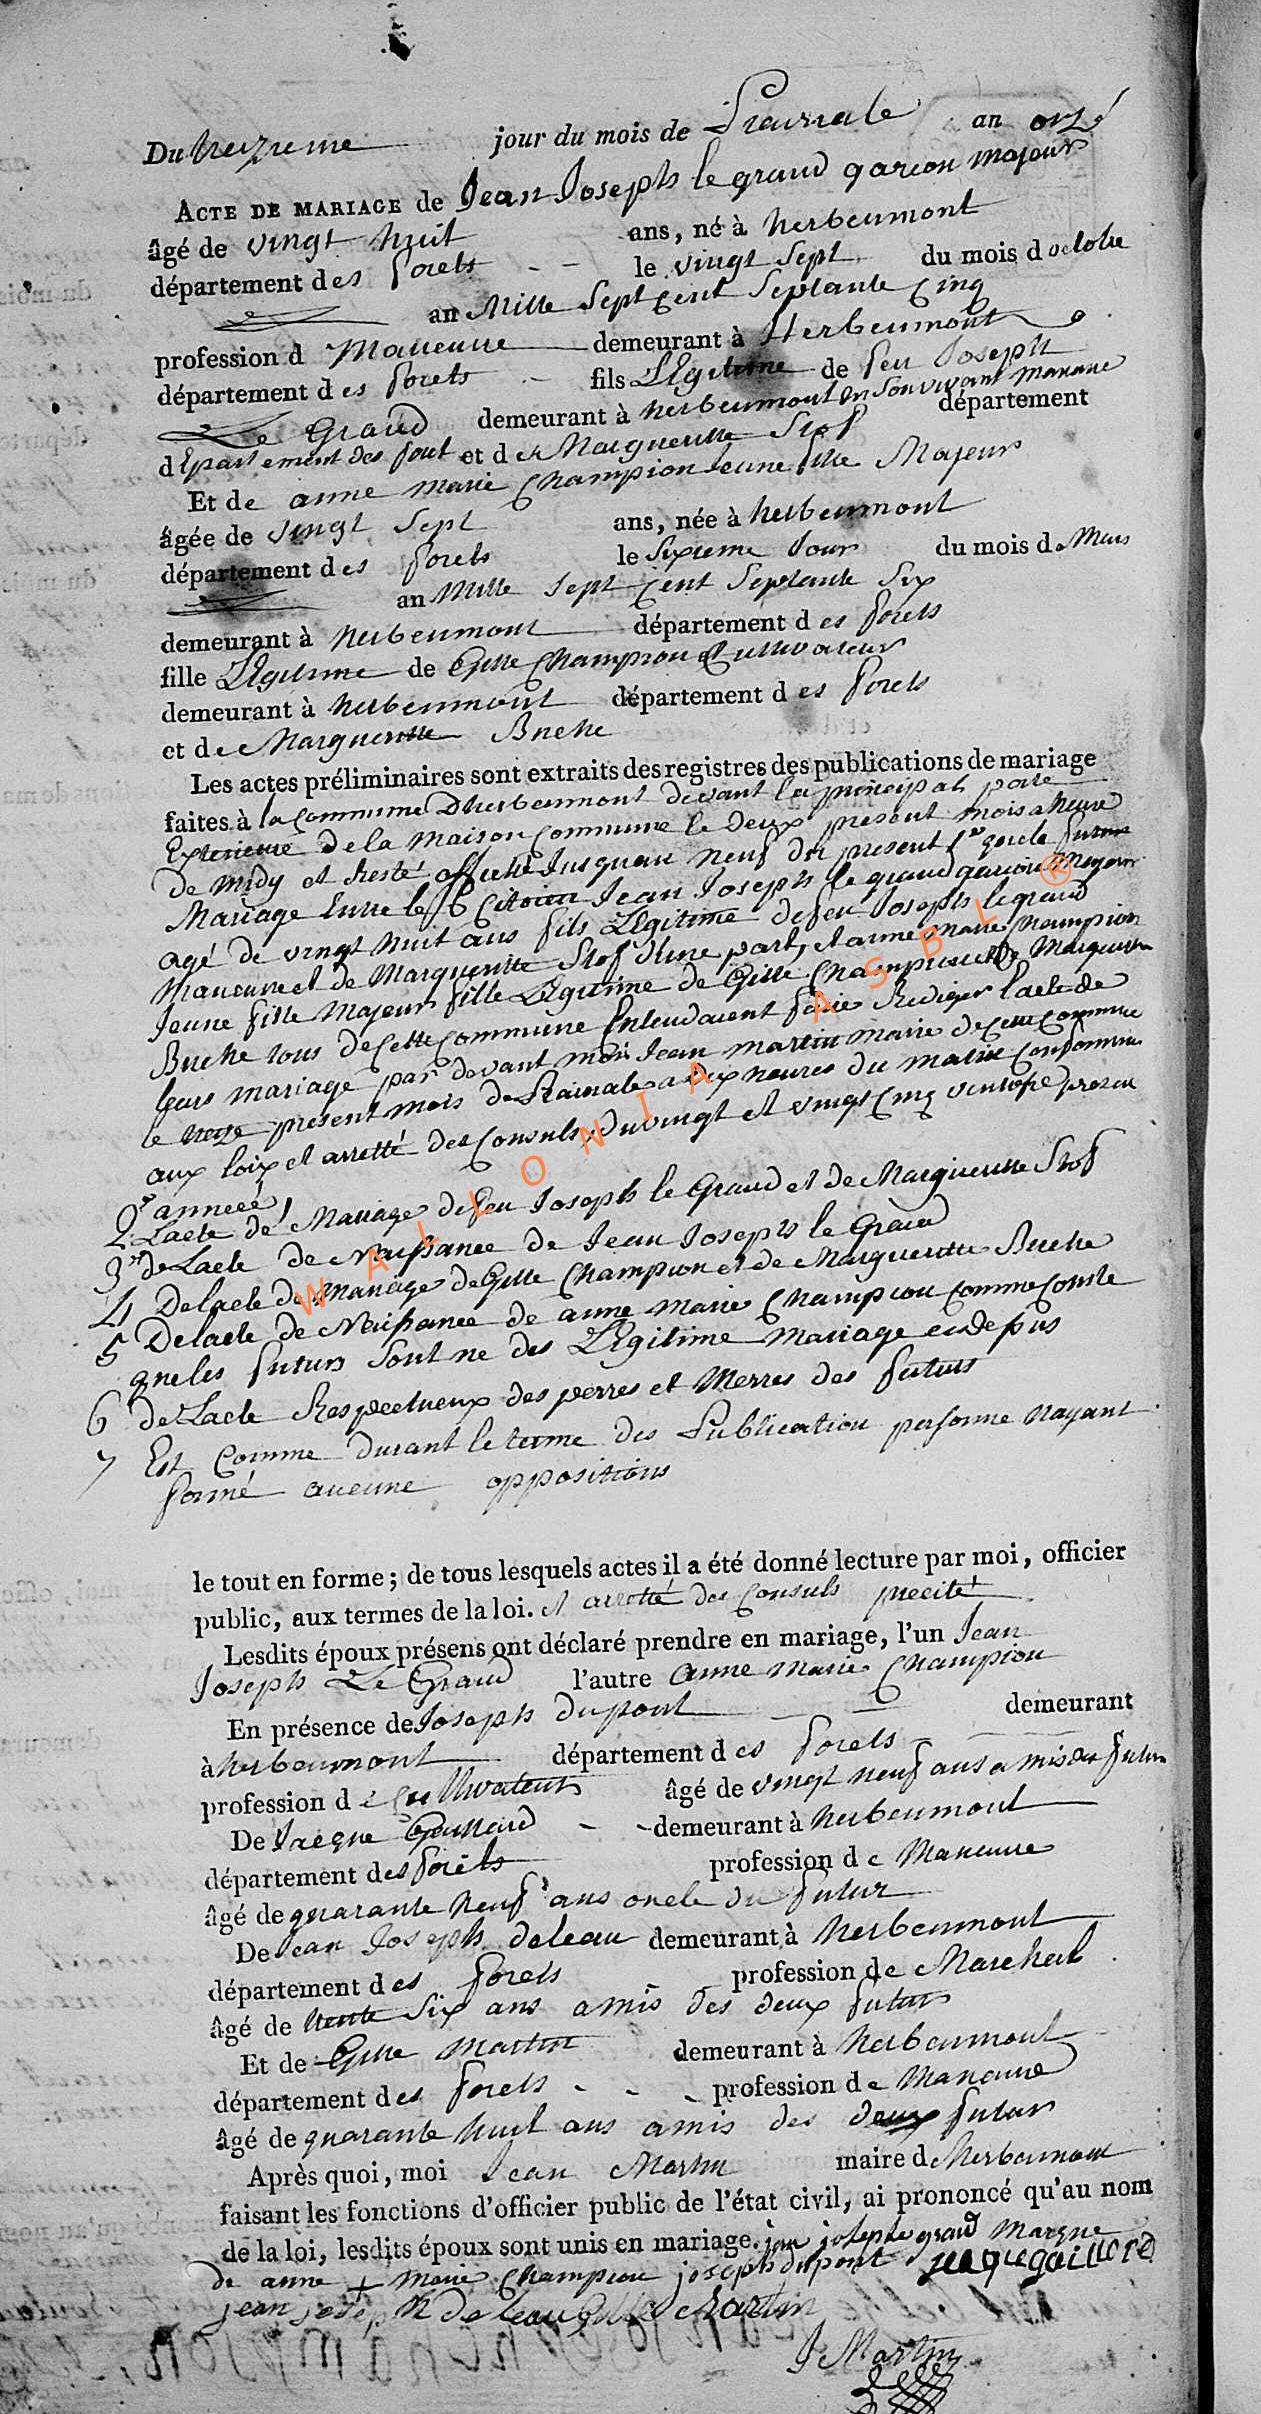 Du treizieme jour du mois de Prairiale an onze
ACTE DE MARIAGE de Jean Joseph le grand garcon majeur
âgé de vingt huit ans, né à herbeumont
département des forets le vingt sept du mois d octobre
an Mille Sept Cent Septante Cinq
profession d Maneuvre demeurant à Herbeumont
département des forets fils LEgitime de feu Joseph
Le Grand demeurant à herbeumont en son vivant Maneuvre département
dEpartement des foret et de Marguerite Stof
Et de anne marie Champion Jeune fille Majeur
âgée de vingt Sept ans, née à herbeumont
département des forets le Sixieme Jour du mois de Mars
an Mille Sept Cent Septante Six
demeurant à herbeumont département des forets
fille LEgitime de Gille Champion Cultivateur
demeurant à herbeumont département des forets
et de Marguerite Buche
Les actes préliminaires sont extraits des registres des publications de mariage
faites à la Commune Dherbeumont devant la principal porte
Exterieure de la Maison Commune le Deux present mois a heure
De midy et Resté affiché Jusquau neuf du present 1er que le futur
Mariage Entre le Citoien Jean Joseph le grand garcon Majeur
agé de vingt huit ans fils LEgitime de feu Joseph legrand
maneuvre et de Marguerite Stof dune part, et anne marie Champion
Jeune fille Majeur fille LEgitime de Gille Champion et de Marguerite
Buche tous de Cette Commune Entendaient faire Rediger lacte de
leurs mariage par devant moi Jean martin maire de Cette Commune
le treize present mois de Prairiale a dix heures du matin Conformem
aux loix et arretté des Consuls du vingt et vingt Cinq ventose present
année
2 Lacte de Mariage de feu Joseph le Grand et de Marguerite Stof
3 de Lacte de Naissance de Jean Joseph le Grand
4 De lacte de Mariage de Gille Champion et de Marguerite Buche
5 De lacte de Naissance de anne marie Champion Comme Conste
que les futurs Sont né des LEgitime mariage cidessus
6 de Lacte Respectueux des perres et Merres des futurs
7 Est Comme durant le terme des Publication personne Nayant
formé aucune oppositions
le tout en forme ; de tous lesquels actes il a été donné lecture par moi, officier
public, aux termes de la loi. et arretté des Consuls precité
Lesdits époux présens ont déclaré prendre en mariage, l'un Jean
Joseph Le Grand l'autre anne marie Champion
En présence de Joseph dupont demeurant
à herbeumont département des forets
profession de Cultivateur âgé de vingt neuf ans amis du futur
De Jacque Gaillard demeurant à herbeumont
département des forêts profession de Maneuvre
âgé de quarante Neuf ans oncle du futur
De Jean Joseph deleau demeurant à herbeumont
département des forets profession de Marchal
âgé de trente Six ans amis des deux futur
Et de Gille Martin demeurant à herbeumont
département des forets profession de Maneuvre
âgé de quarante huit ans amis des deux futur
Après quoi, moi Jean Martin maire d herbeumont
faisant les fonctions d'officier public de l'état civil, ai prononcé qu'au nom
de la loi, lesdits époux sont unis en mariage. jan joseph le grand Marque
de anne + marie Champion joseph dupont jacque gaillard
jean joseph deleau Gille Martin
J Martin
WALLONIA ASBL ®